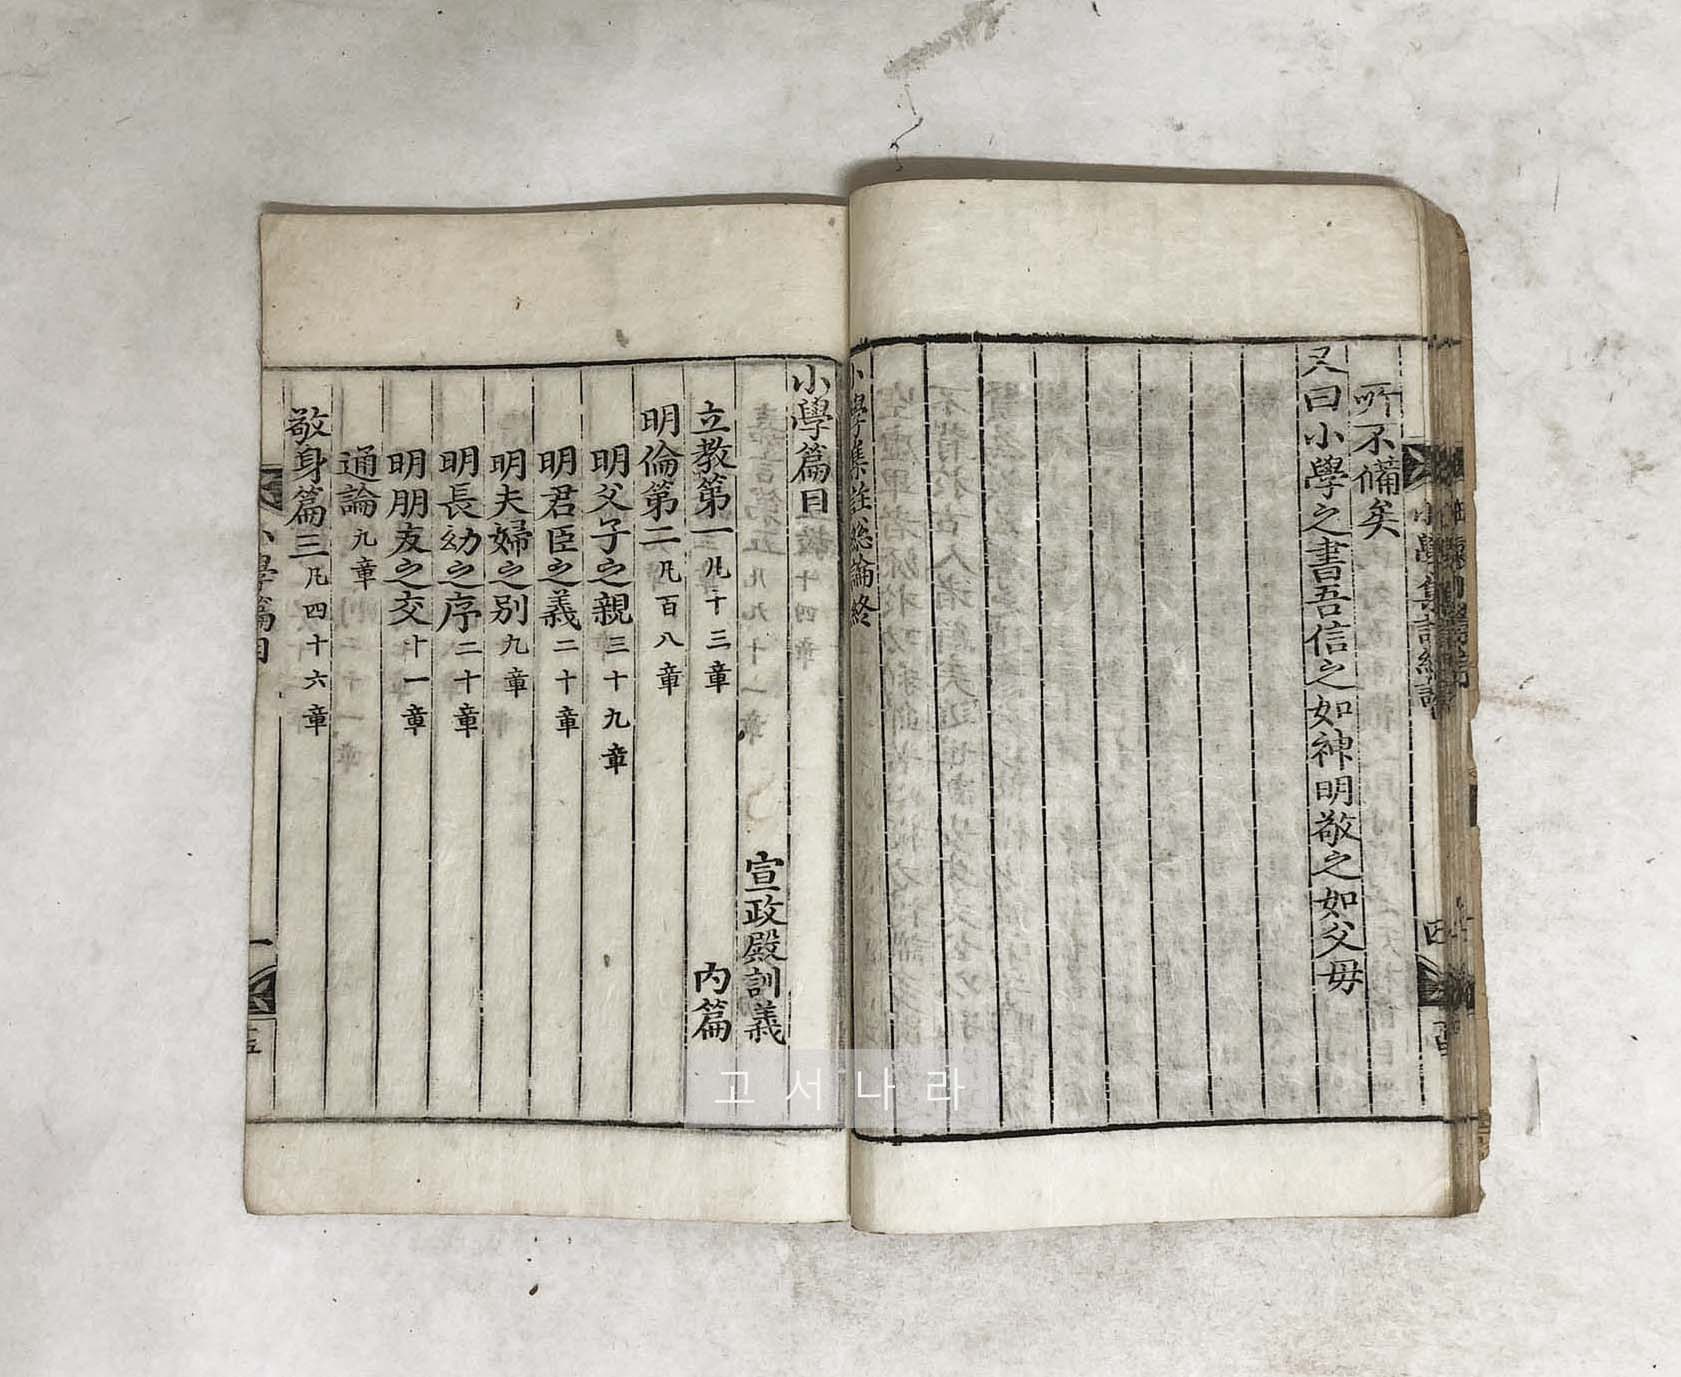 所不備矣
又曰小學之書吾信之如神明敬之如父母
小學集註總論終
小學集註總論
四
小學篇目
宣政殿訓義
內篇
立教第一凡十三章
明倫第二凡百八章
明父子之親三十九章
明君臣之義二十章
明夫婦之別九章
明長幼之序二十章
明朋友之交十一章
通論九章
敬身篇三凡四十六章
小學篇目
一
고서나라